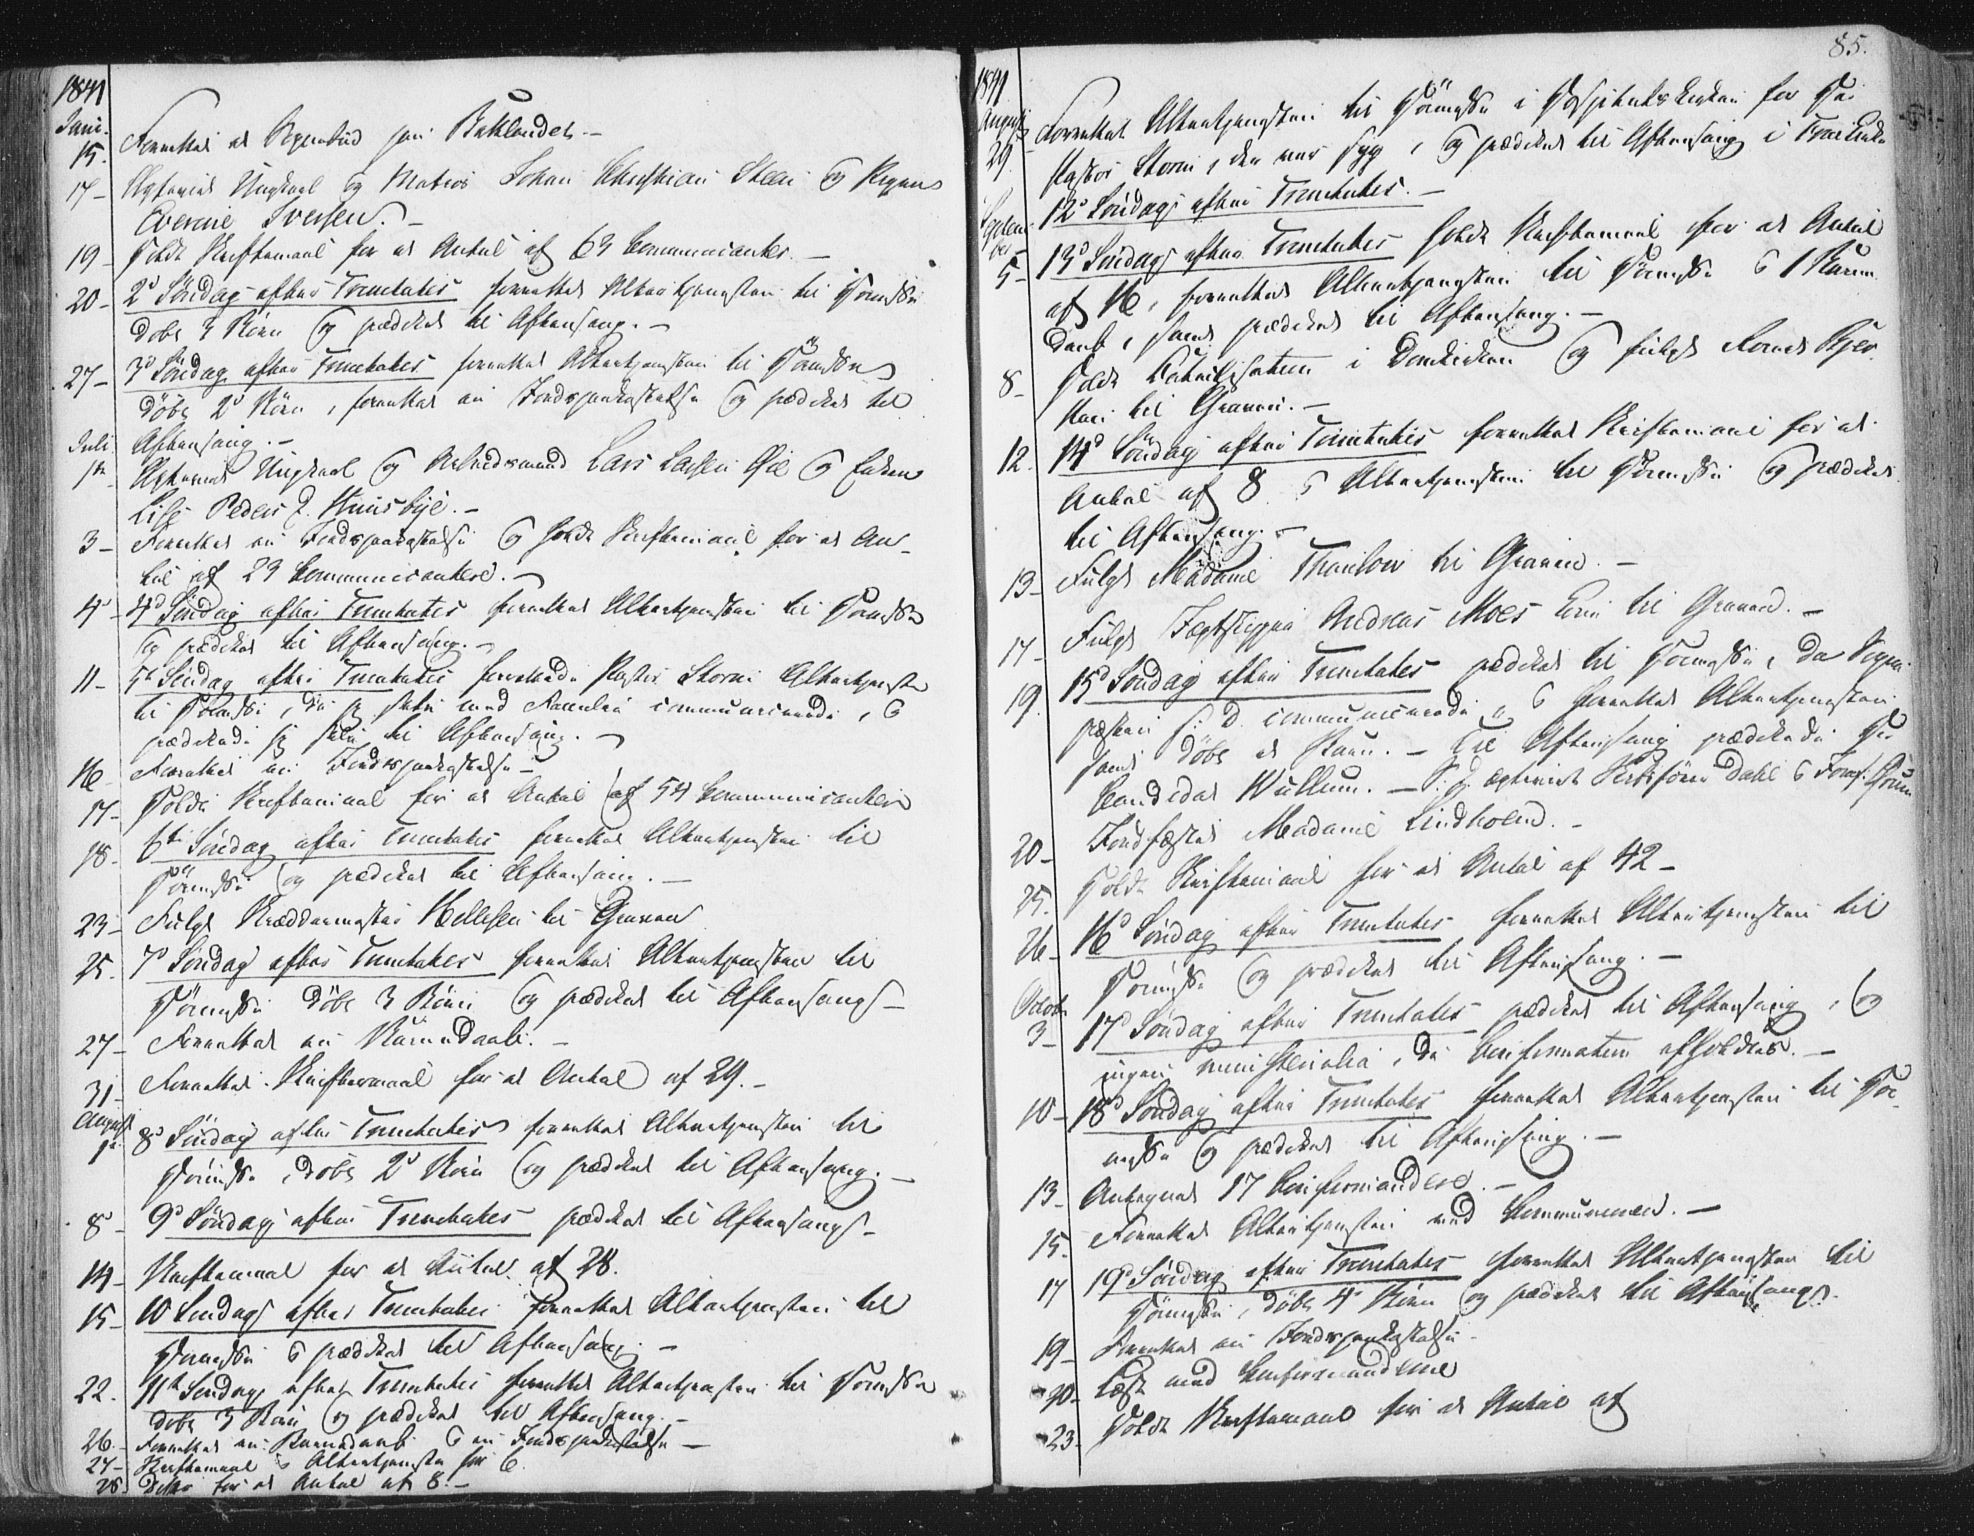 1841
Juni.
15. Forrettet et Sygenbud paa Baklandet. –
17 – Ægteviet Ungkarl og Matros Johan Christian Steen og Pigen
Everine Iversen. –
19 – Holdt Skriftemaal for et Antal af 63 Communicanter. –
20 – 2d Søndag efter Trinitatis forrettet Altertjenesten til Høimesse
døbt 3 Børn og prædiket til Aftensang. –
27 – 3d Søndag efter Trinitatis forrettet Altertjenesten til Høimesse
døbt 2d Børn, forrettet en Jordspaakastelse og prædiket til
Aftensang. –
Juli.
Ægteviet Ungkarl og Arbeidsmand Lars Larsen og Enken
Lise Peders D. –
3 – Forrettet en Jordspaakastelse og holdt Skriftemaal for et An-
tal af 23 Communicantere. –
4d – 4d Søndag efter Trinitatis forrettet Altertjenesten til Høimesse
og prædiket til Aftensang. –
11 – 5te Søndag efter Trinitatis forrettede Pastor Storm Altertjenesten
til Høimesse, da jeg selv med Familie communicerede, og
prædikede jeg selv til Aftensang. –
16 – Forrettet en Jordspaakastelse –
17 – Holdt Skriftemaal for et Antal af 54 Communicanter
18 – 6te Søndag efter Trinitatis forrettet Altertjenesten til
Høimesse og prædiket til Aftensang. –
23 – Fulgt Skræddermester Hellesen til Graven
25. 7d Søndag efter Trinitatis forrettet Altertjenesten til
Høimesse døbt 3 Børn og prædiket til Aftensangs –
27 – Forrettet en Barnedaab. –
31 – Forrettet Skriftemaal for et Antal af 29. –
August
1d 8d Søndag efter Trinitatis forrettet Altertjenesten til
Høimesse, døbt 2d Børn og prædiket til Aftensang. –
8d – 9d Søndag efter Trinitatis prædiket til Aftensangs –
14 – Skriftemaal for et Antal af 28.
15 – 10 Søndag efter Trinitatis forrettet Altertjenesten til
Høimesse og prædiket til Aftensang. –
22. 11te Søndag efter Trinitatis forrettet Altertjenesten til Høimesse
døbt 3 Børn og prædiket til Aftensang. –
26. – Forrettet en Barnedaab og en Jordspaakastelse –
27 – Skriftemaal og Altertjeneste for 6
28. Ditto for et Antal af 8. –
85.
1841
August
29. Forrettet Altertjenesten til Høimesse i Hospitalskirken for Hr.
Pastor Storm, der var syg, og prædiket til Aftensang i Frue Kirke
12d Søndag efter Trinitatis. –
Septem-
ber
5 – 13d Søndag efter Trinitatis holdt Skriftemaal for et Antal
af 16, forrettet Altertjenesten til Høimesse og 1 Barne-
daab, samt prædiket til Aftensang. –
8 – Holdt Catechisation i Domkirken og fulgt
til Graven. –
12. 14d Søndag efter Trinitatis forrettet Skriftemaal for et
Antal af 8 og Altertjenesten til Høimesse og prædiket
til Aftensang. –
13 – Fulgt Madame Thaulow til Graven. –
17 – Fulgt Jægtskipper Andreas Moes Søn til Graven. –
19. 15d Søndag efter Trinitatis prædiket til Høimesse, da Sogne-
præsten S. D. communicerede, og forrettet Altertjenesten
samt døbt et Barn. – Til Aftensang prædikede Hr
Candidat Wullum. – S. D. ægteviet Dahl og Jomf.
20 – Jordfæstet Madame Lindholm. –
25. Holdt Skriftemaal for et Antal af 42 –
26 – 16d Søndag efter Trinitatis forrettet Altertjenesten til
Høimesse og prædiket til Aftensang. –
Octobr.
3 – 17d Søndag efter Trinitatis prædiket til Aftensang, og
ingen ministerialia, da Confirmation afholdtes. –
10 – 18d Søndag efter Trinitatis forrettet Altertjenesten til Høi-
messe og prædiket til Aftensang. –
13 – Antegnet 17 Confirmandere. –
15. Forrettet Altertjenesten med Communionen. –
17 19d Søndag efter Trinitatis forrettet Altertjenesten til
Høimesse, døbt 4d Børn og prædiket til Aftensangs. –
19 – Forrettet en Jordspaakastelse. –
20 – Læst med Confirmanderne
23. Holdt Skriftemaal for et Antal af